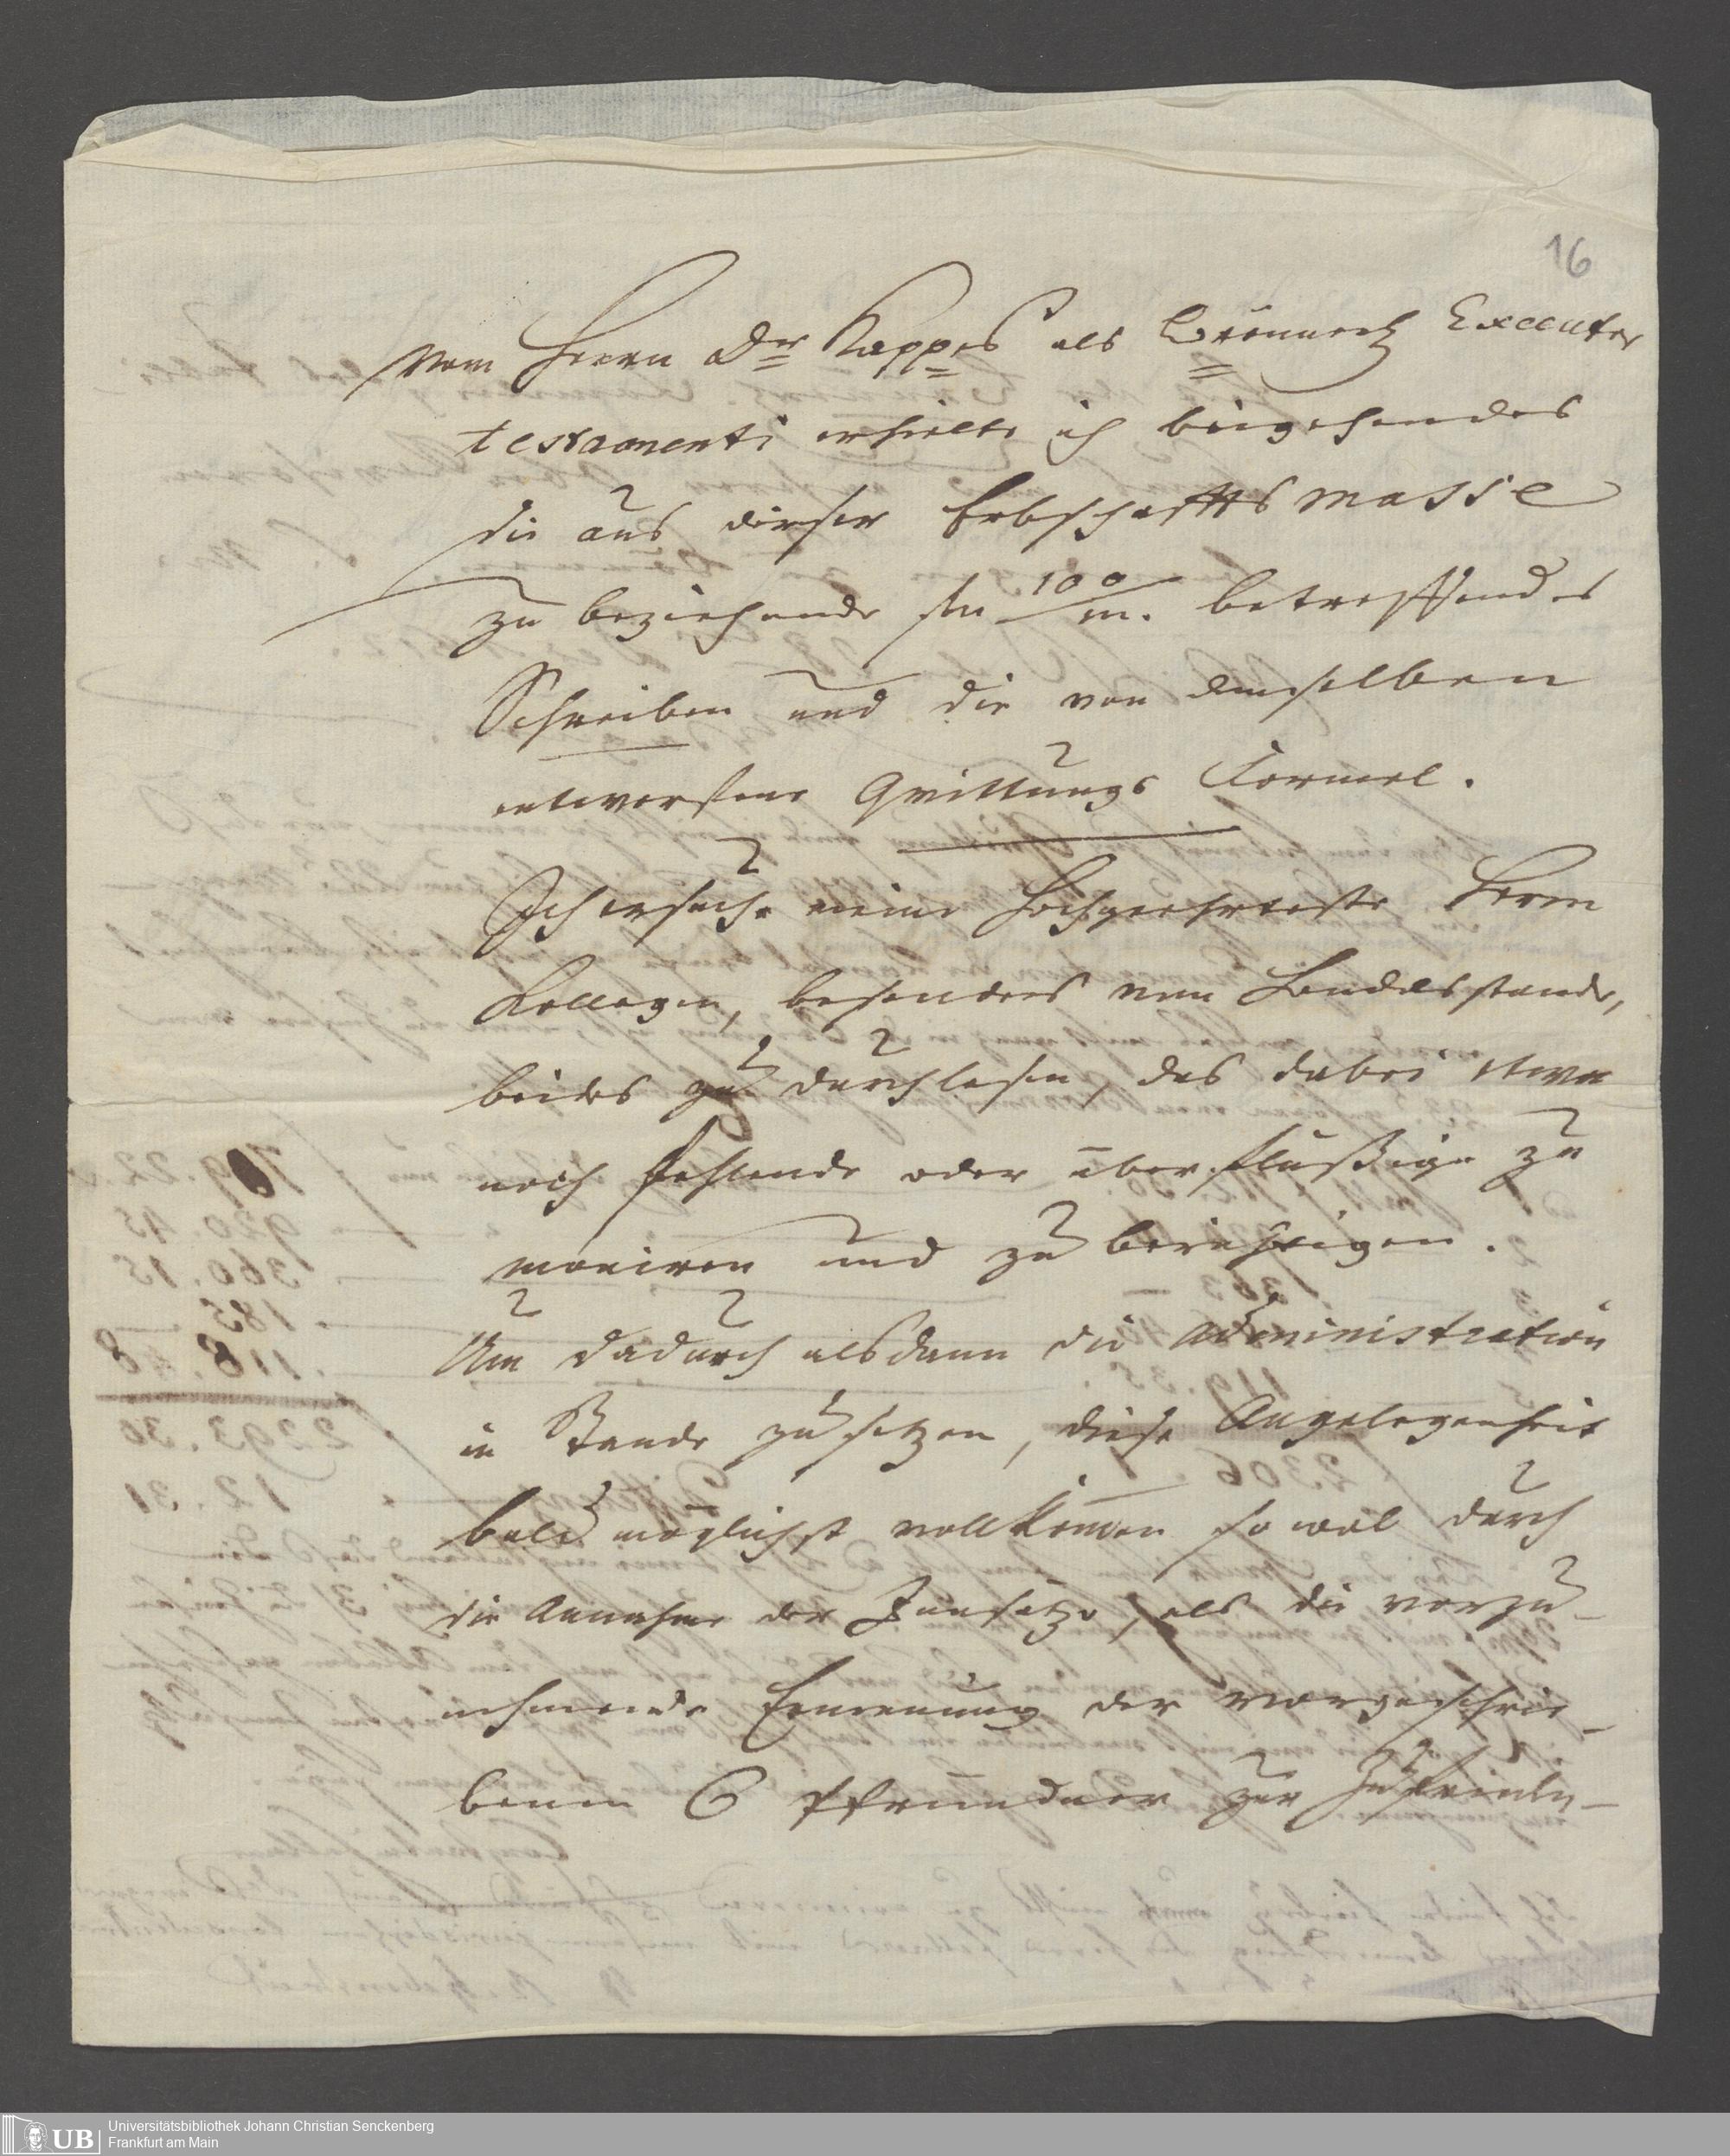 16
Vom Herrn Dr Kappes als Brönnerth Executor
testamenti erhielte ich beigehendes
die aus dieser Erbschaftts masse
zu beziehende fln 100/m. betreffendes
Schreiben und die von demselben
entworfene Quittungs Formel.
Ich ersuche meine Hochgeehrteste Herrn
Kollegen, besonders vom Handelsstande,
beides zu durchlesen, das dabei etwa
noch fehlende oder überflüßige zu
moniren und zu berichtigen.
Um dadurch alsdann die Administration
in Stande zu setzen, diese Angelegenheit
bald möglichst vollkommen so wol durch
die Annahme der  als die vorzu-
nehmende Ernennung der vorgeschrie-
benen 6 Pfründner zur
Universitätsbibliothek Johann Christian Senckenberg
Frankfurt am Main
UB